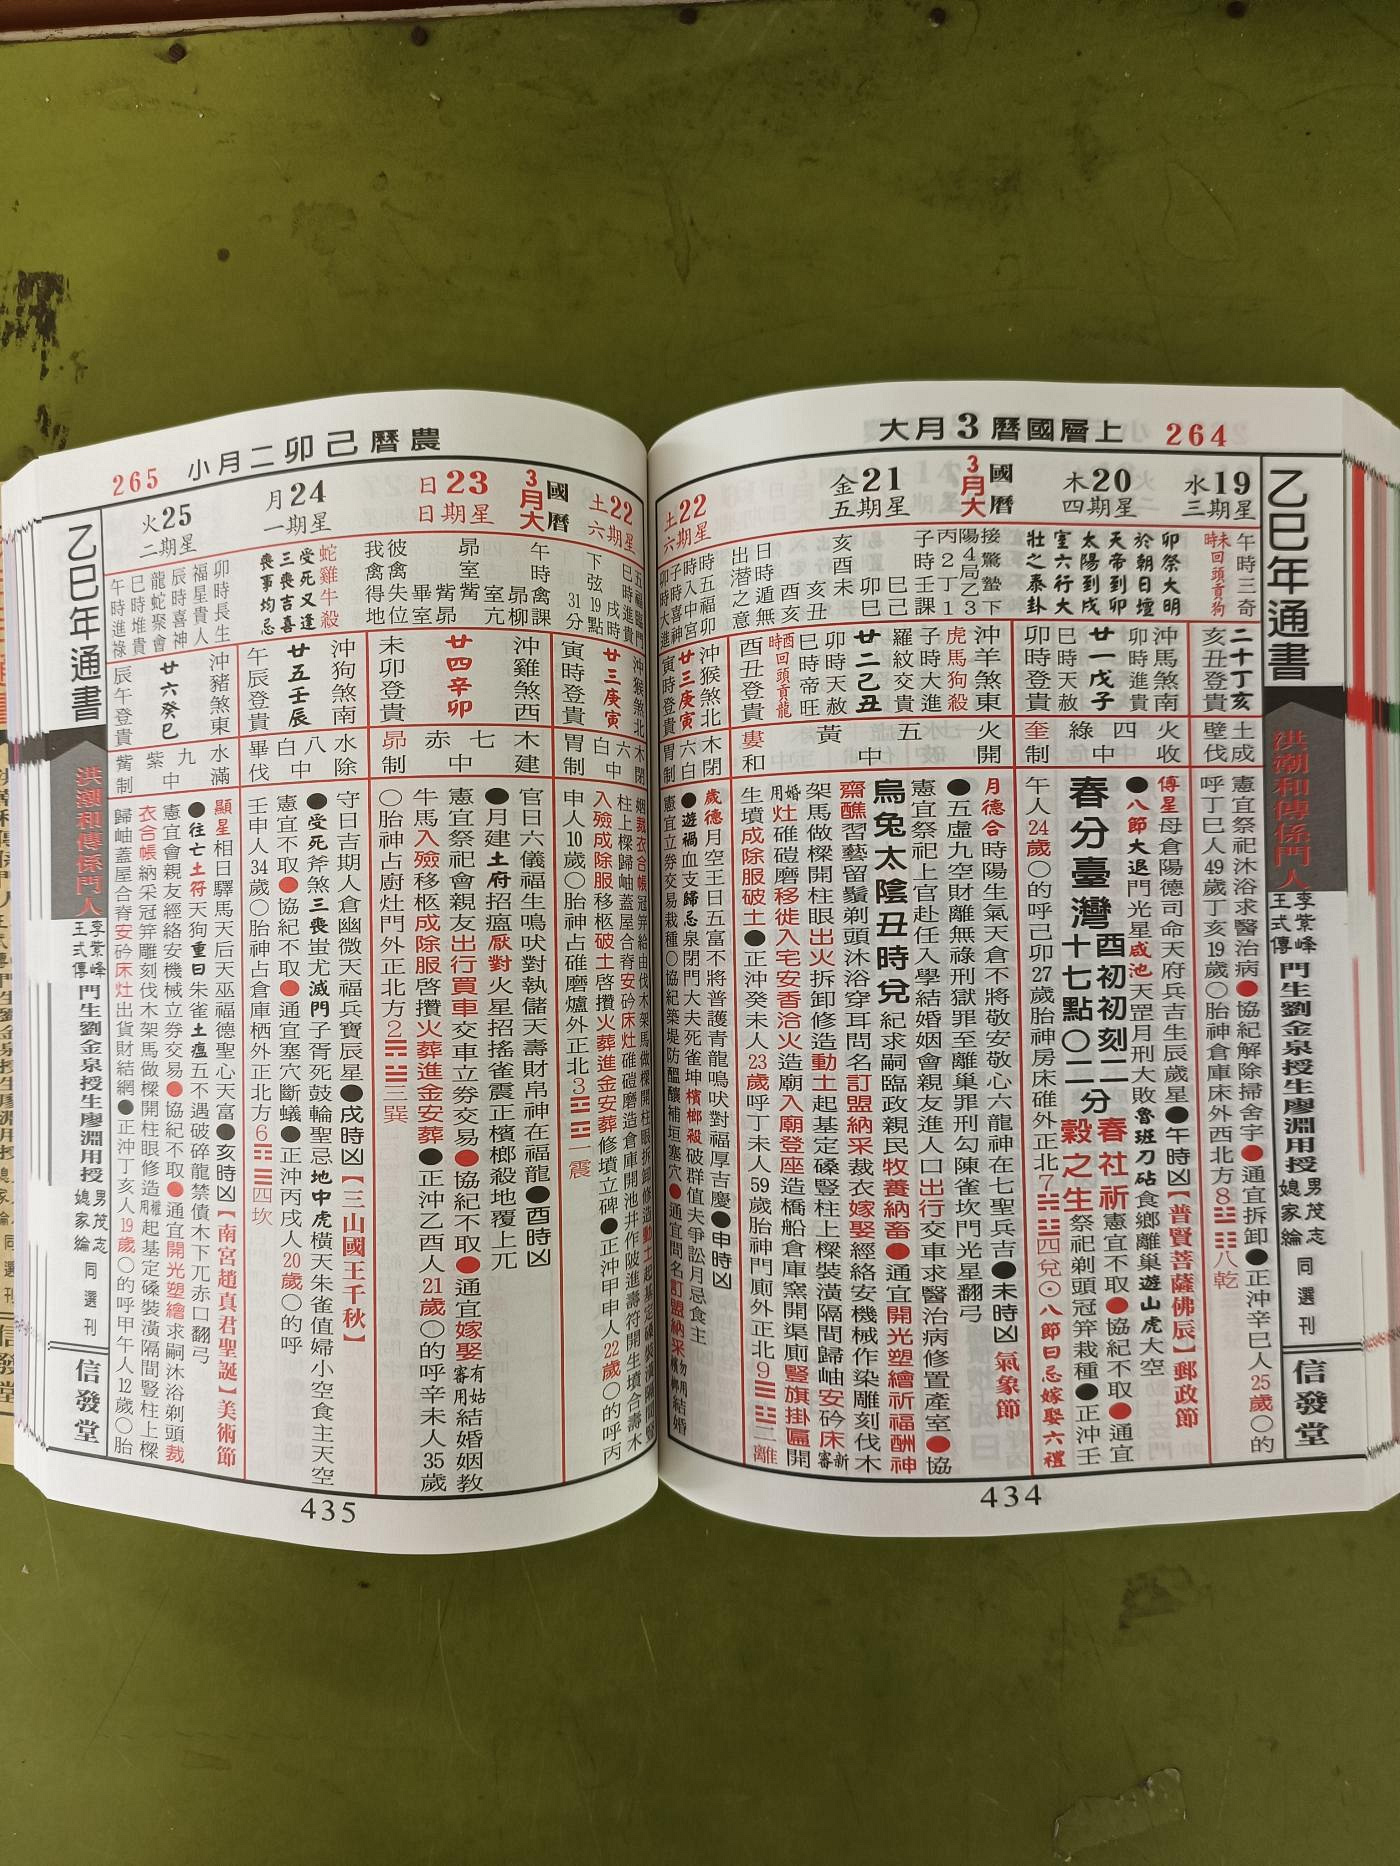 大月3曆國層上
264
乙巳年通書
洪潮和傳係門人
李紫峰
王式傳
門生劉金泉授生廖淵用授
男茂志
媳家綸
同選刊
信發堂
水19
三期星
午時三奇
未時回頭貢狗
二十丁亥
亥丑登貴
土成
壁伐
憲宜祭祀沐浴求醫治病●協紀解除掃舍宇●通宜拆卸●正沖辛巳人25歲○的
呼丁巳人49歲丁亥19歲○胎神倉庫床外西北方8
八乾
木20
四期星
卯祭大明
於朝日壇
天帝到卯
太陽到戌
室六行大
壯之泰卦
沖馬煞南
卯時進貴
廿一戊子
巳時天赦
卯時登貴
火收
四
綠中
奎制
傅星母倉陽德司命天府兵吉生辰歲星●午時凶【普賢菩薩佛辰】郵政節
●八節大退門光星咸池天罡月刑大敗魯班刀砧食鄉離巢遊山虎大空
春分臺灣
酉初初刻二分
十七點○二分
春社祈
穀之生
憲宜不取●協紀不取●通宜
祭祀剃頭冠笄栽種●正沖壬
午人24歲○的呼己卯27歲胎神房床碓外正北7
四兌⊙八節日忌嫁娶六禮
國曆
3月大
金21
五期星
接驚蟄下
陽4局乙3
丙2丁1
子時壬課
巳己
卯巳
亥酉未
亥丑
酉亥
日時遁無
出潜之意
沖羊煞東
虎馬猴殺
子時大進
羅紋交貴
廿二己丑
卯時天赦
巳時帝旺
酉時回頭貢龍
酉丑登貴
火開
五
黃中
婁和
月德合時陽生氣天倉不將敬安敬心六龍神在七聖兵吉●未時凶 氣象節
●五虛九空財離無祿刑獄罪至離巢罪刑勾陳雀坎門光星翻弓
憲宜祭祀上官赴任入學結婚姻會親友進人口出行交車求醫治病修置產室●協
烏兔太陰丑時兌
紀求嗣臨政親民牧養納畜●通宜開光塑繪祈福酬神
齋醮習藝留鬚剃頭沐浴穿耳問名訂盟納采裁衣嫁娶經絡安機械作染雕刻伐木
架馬做樑開柱眼出火拆卸修造動土起基定磉豎柱上樑裝潢隔間歸岫安砛床新審
用婚灶碓磑磨移徙入宅安香洽火造廟入廟登座造橋船倉庫窯開渠廁豎旗掛匾開
生墳成除服破土●正沖癸未人23歲呼丁未人59歲胎神門廁外正北9
三離
土22
六期星
時五福卯
時入中宮
子時喜神
卯時大進
沖猴煞北
廿三庚寅
寅時登貴
木閉
六白
胃制
歲德月空王日五富不將普護青龍鳴吠對福厚吉慶●申時凶
●遊禍血支歸忌泉閉門大夫死雀坤檳榔殺破群值夫爭訟月忌食主
憲宜立券交易栽種○協紀築堤防醞釀補垣塞穴●通宜問名訂盟納采
434
農曆己卯二月小
265
土22
六期星
五福臨門
巳時進貴
戌時
下弦19點
31分
沖猴煞北
廿三庚寅
寅時登貴
木閉
六白中
胃制
柱上樑歸岫蓋屋合脊安砛床灶碓磑磨造倉庫開池井作陂進壽符開生墳合壽木
入殮成除服移柩破土啓攢火葬進金安葬修墳立碑●正沖甲申人22歲○的呼丙
申人10歲○胎神占碓磨爐外正北3
一震
國曆
3月大
日23
日期星
午時禽課
昴柳
室亢
昴室觜
觜昴
畢室
彼禽失位
我禽得地
沖雞煞西
廿四辛卯
未卯登貴
木建
七
赤中
昴制
官日六儀福生鳴吠對執儲天壽財帛神在福龍●酉時凶
●月建土府招瘟厭對火星招搖雀震正檳榔殺地覆上兀
憲宜祭祀會親友出行買車交車立券交易●協紀不取●通宜嫁娶有姑審用結婚姻教
牛馬入殮移柩成除服啓攢火葬進金安葬●正沖乙酉人21歲○的呼辛未人35歲
○胎神占廚灶門外正北方2
三巽
月24
一期星
蛇雞牛殺
受死又逢
三喪吉喜
喪事均忌
沖狗煞南
廿五壬辰
午辰登貴
水除
八
白中
畢伐
守日吉期人倉幽微天福兵寶辰星●戌時凶【三山國王千秋】
●受死斧煞三喪蚩尤滅門子胥死鼓輪聖忌地中虎橫天朱雀值婦小空食主天空
憲宜不取●協紀不取●通宜塞穴斷蟻●正沖丙戌人20歲○的呼
壬申人34歲○胎神占倉庫栖外正北方6
四坎
火25
二期星
卯時長生
福星貴人
辰時喜神
龍蛇聚會
巳時堆貴
午時進祿
沖豬煞東
廿六癸巳
辰午登貴
水滿
九
紫中
觜制
顯星相日驛馬天后天巫福德聖心天富●亥時凶【南宮趙真君聖誕】美術節
●往亡土符天狗重日朱雀土瘟五不遇破碎龍禁債木下兀赤口翻弓
憲宜會親友經絡安機械立券交易●協紀不取●通宜開光塑繪求嗣沐浴剃頭裁
衣合帳納采冠笄雕刻伐木架馬做樑開柱眼修造用權起基定磉裝潢隔間豎柱上樑
歸岫蓋屋合脊安砛床灶出貨財結網●正沖丁亥人19歲○的呼甲午人12歲○胎
乙巳年通書
洪潮和傳係門人
李紫峰
王式傳
門生劉金泉授生廖淵用授
男茂志
媳家綸
同選刊
信發堂
435